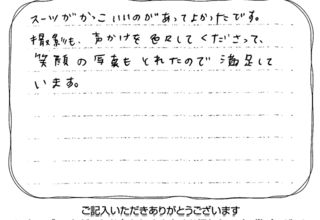 スーツがかっこいいのがあってよかったです。
撮影も、声かけを色々してくださって、
笑顔の写真もとれたので満足して
います。
ご記入いただきありがとうございます